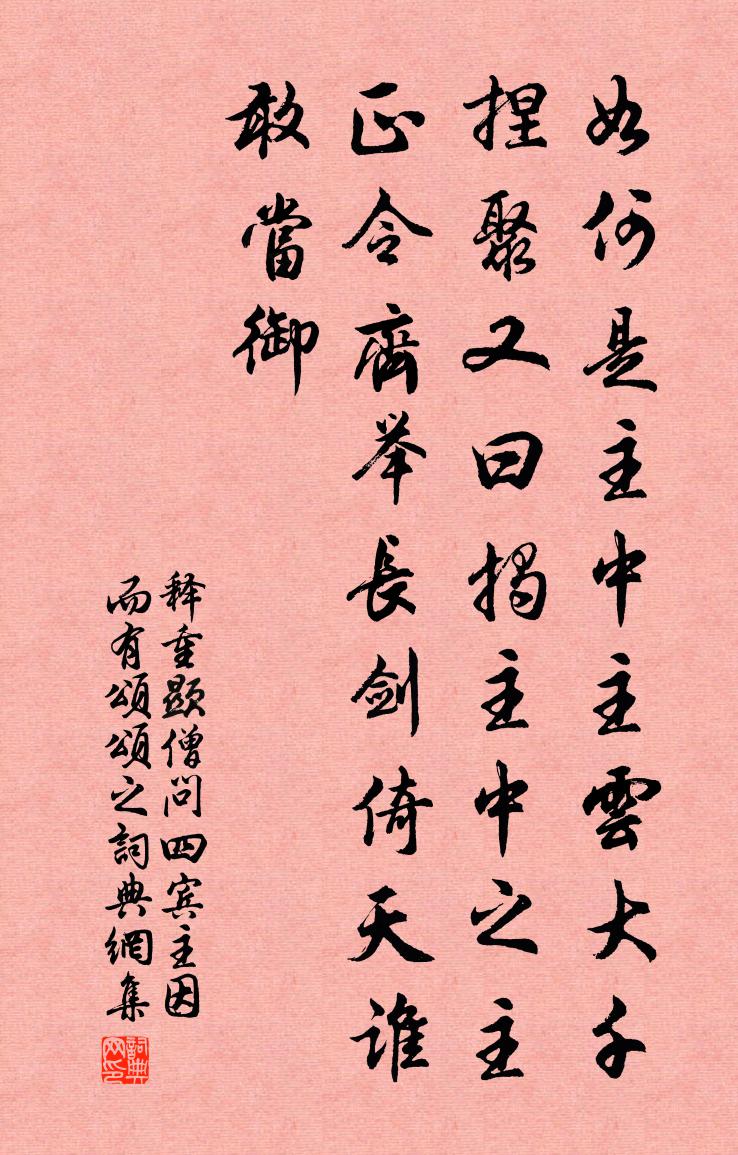 如何是主中主雲大千
捏聚又曰揭主中之主
正令齊举長剑倚天谁
敢當御
释重顯僧问四宾主因
而有頌頌之詞典網集
詞典网印